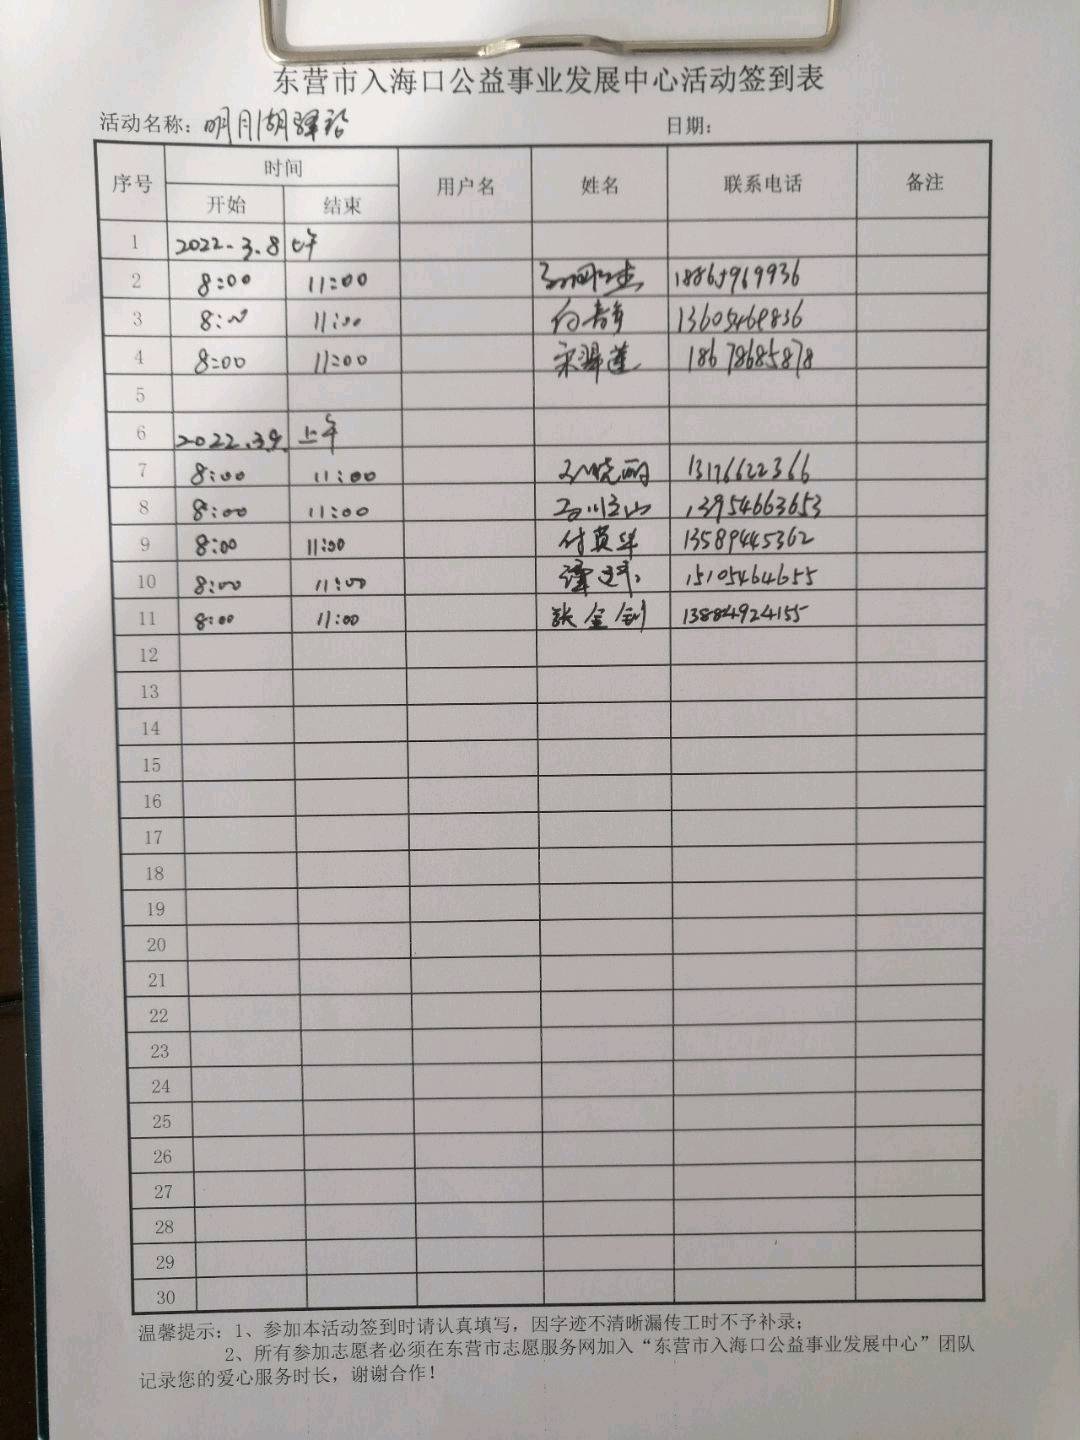 东营市入海口公益事业发展中心活动签到表
活动名称：明月湖驿站 日期：
序号 时间 用户名 姓名 联系电话 备注
开始 结束
1 2022.3.8 上午
2 8:00 11:00
3 8:00 11:00 13605469836
4 8:00 11:00 宋翠莲 18678685878
5
6 2022.3.9. 上午
7 8:00 11:00 13176622366
8 8:00 11:00 13954663653
9 8:00 11:00 付英华 13589445362
10 8:00 11:00 15105464655
11 8:00 11:00 张金钊 13884924155
12
13
14
15
16
17
18
19
20
21
22
23
24
25
26
27
28
29
30
温馨提示：1、参加本活动签到时请认真填写，因字迹不清晰漏传工时不予补录；
2、所有参加志愿者必须在东营市志愿服务网加入“东营市入海口公益事业发展中心”团队
记录您的爱心服务时长，谢谢合作！